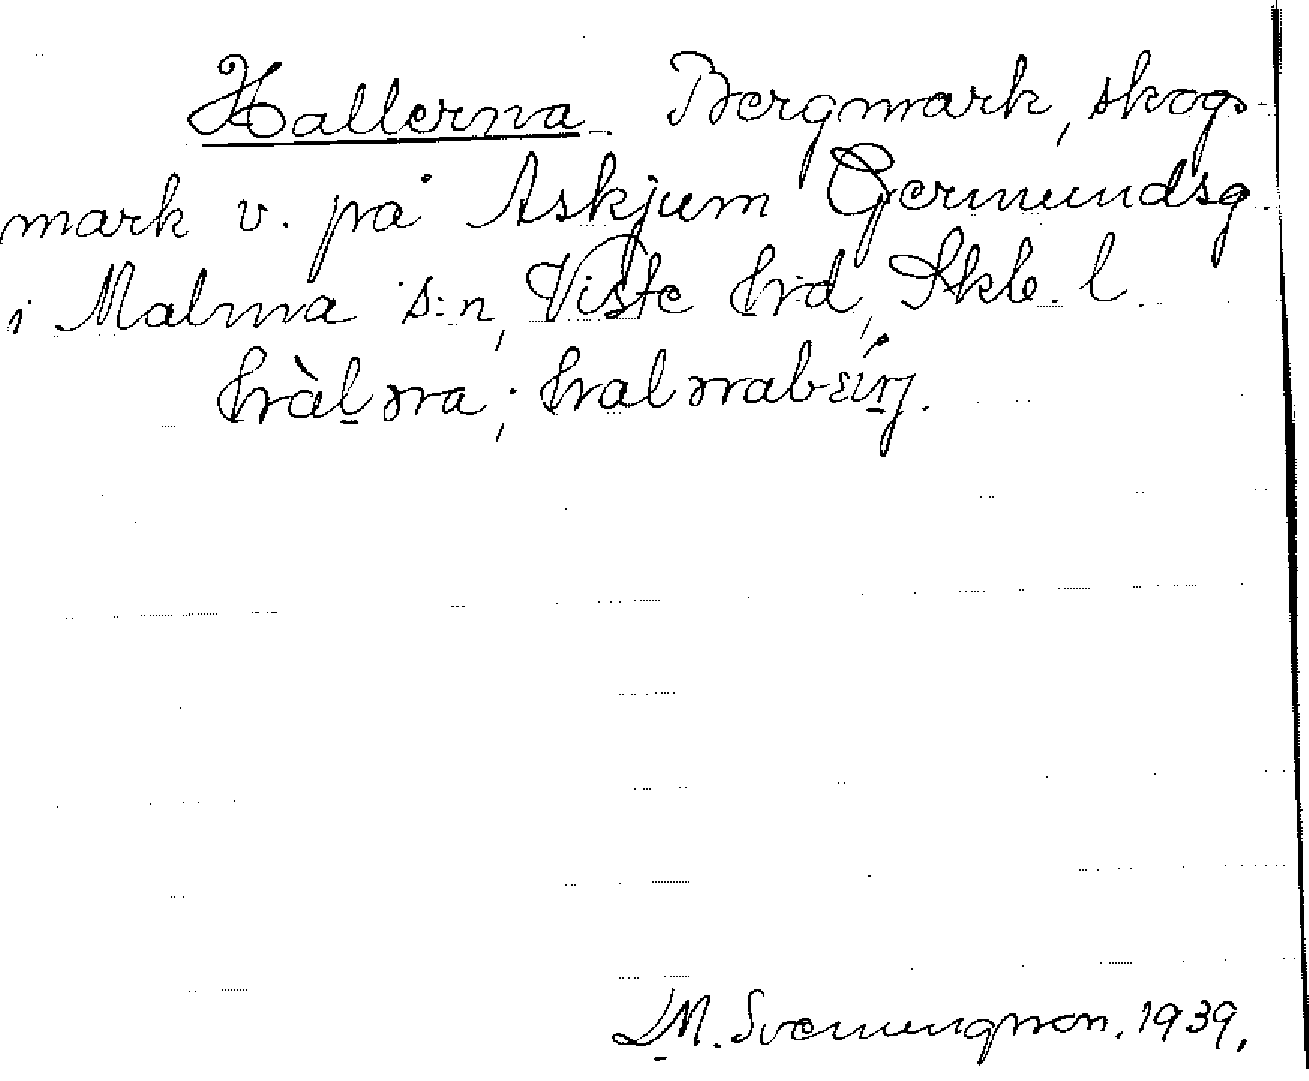 Hallerna Bergmark, skogs-
mark v. på Askjum Germundsg.
i Malma s:n, Viste hrd, Skb. l.
D. M. Svenungsson. 1939.